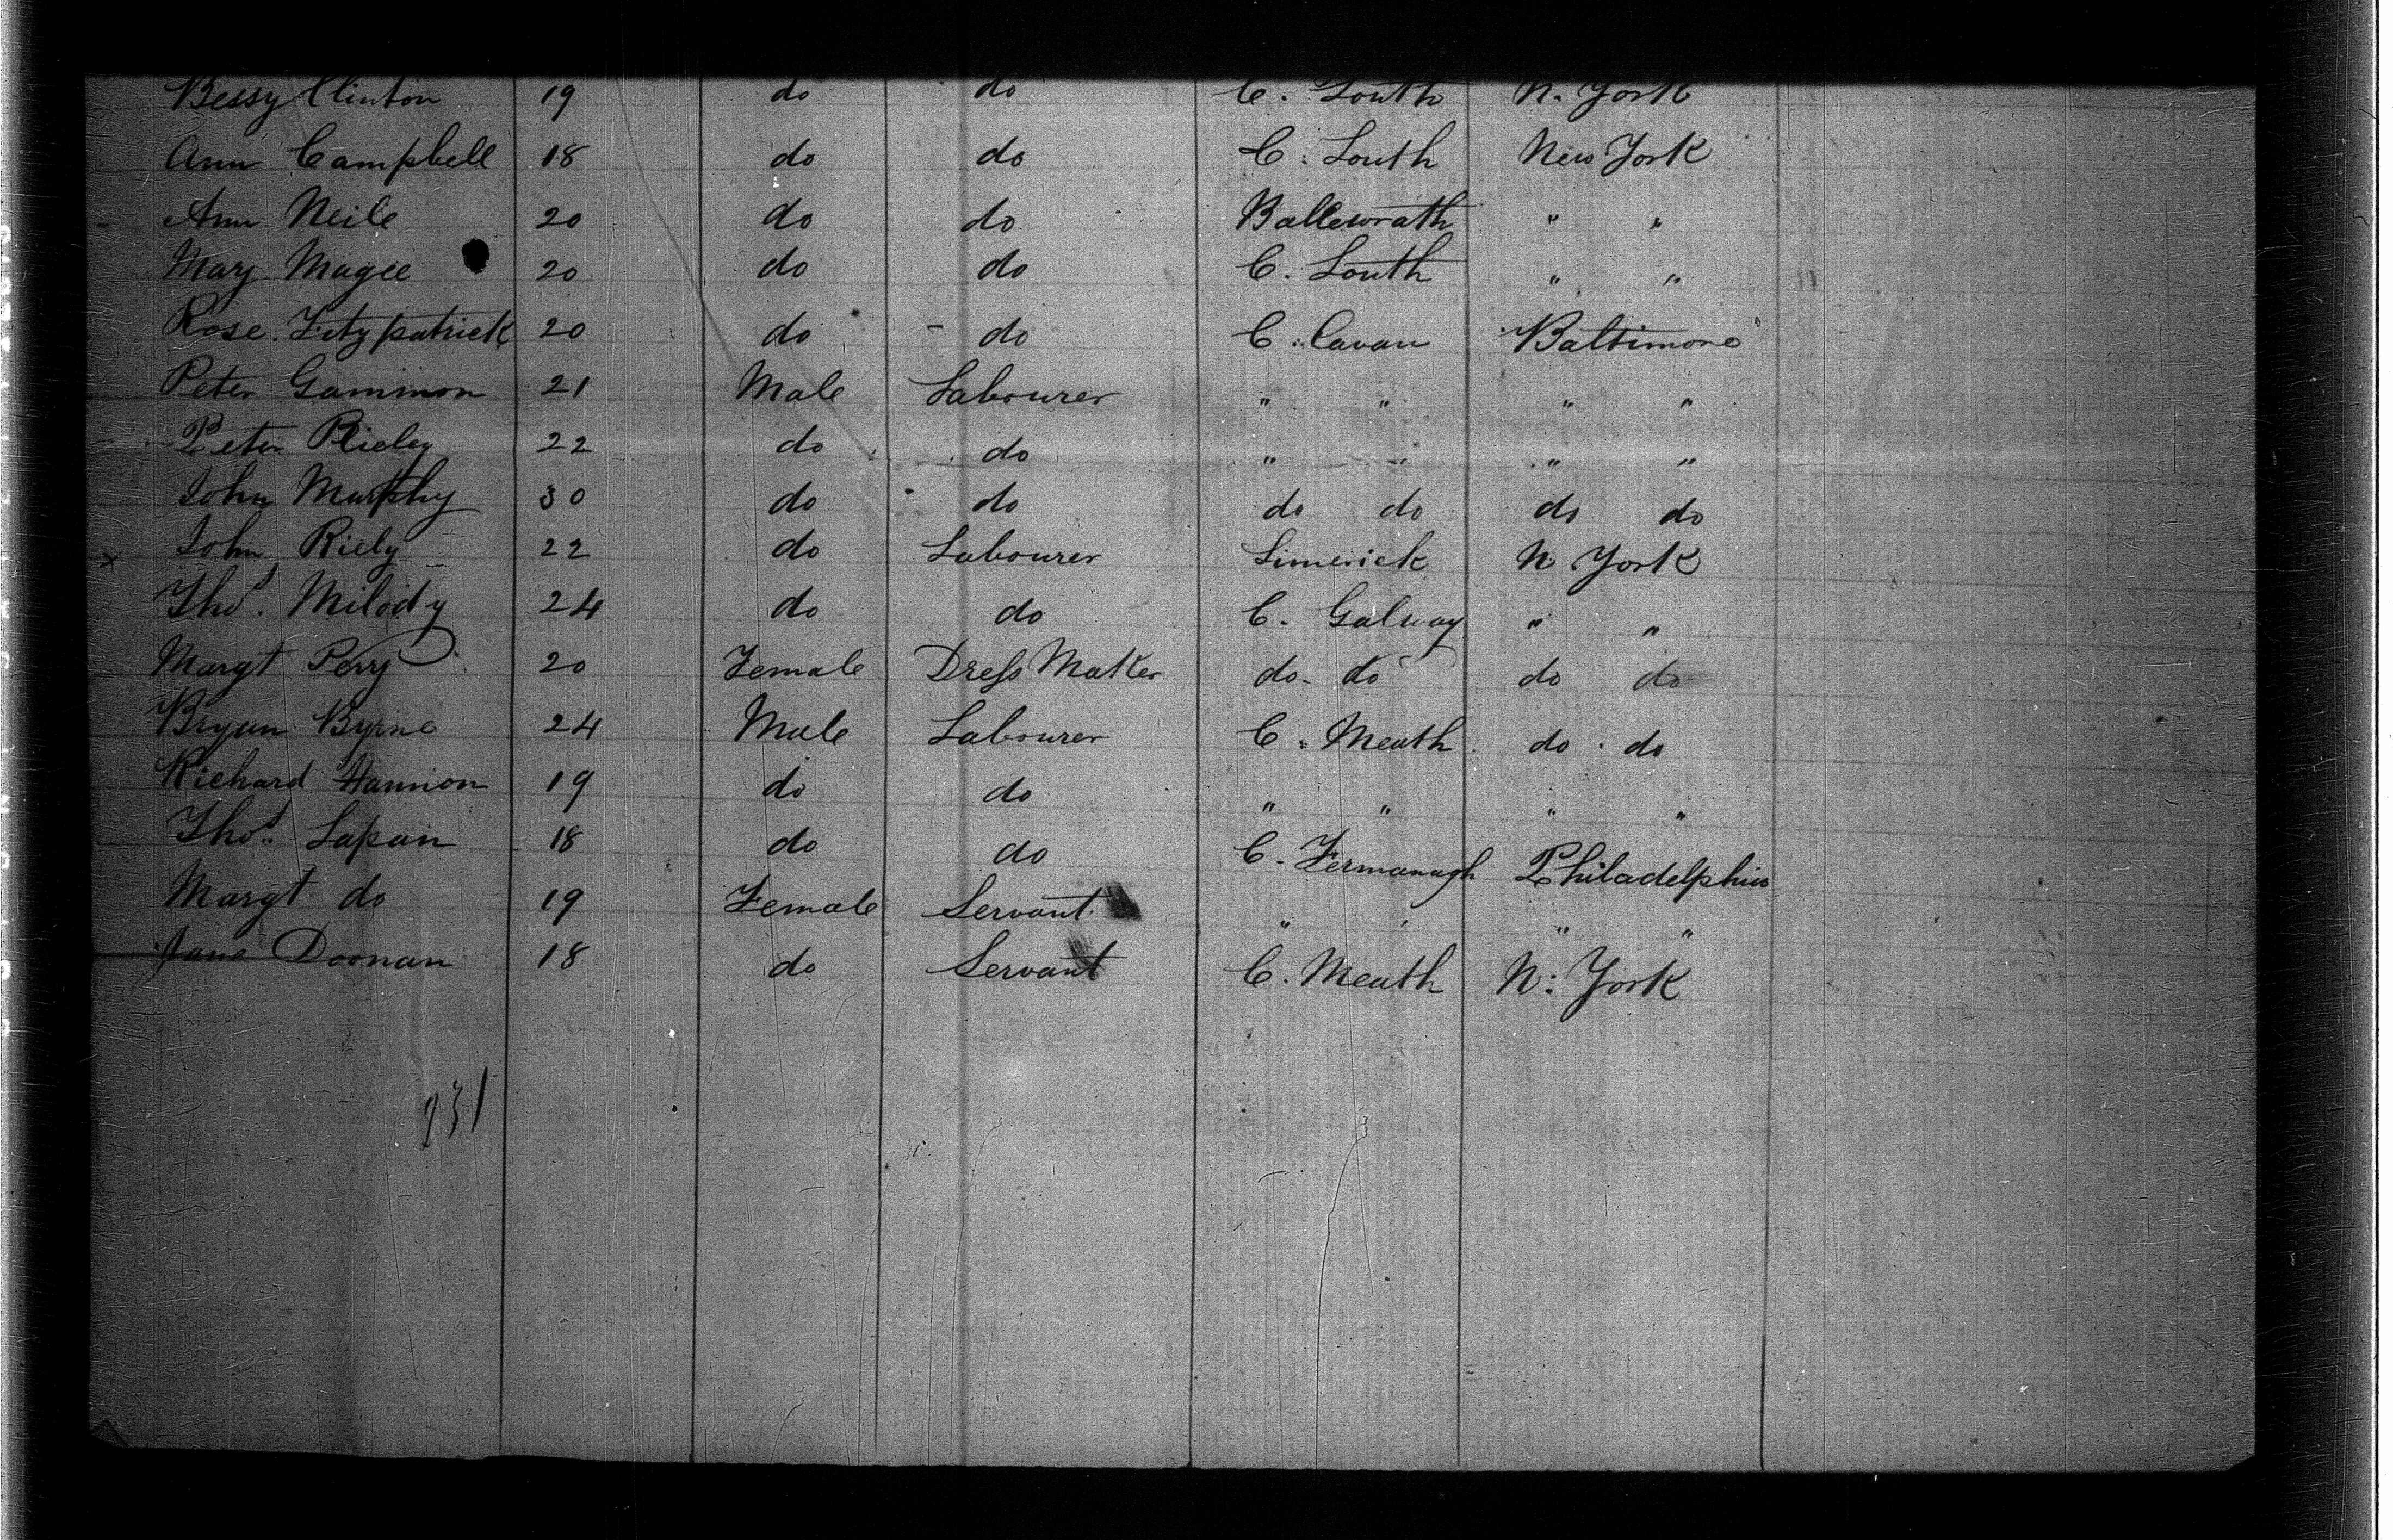 Bessy Clinton 19 do do C. Louth N. York
Ann Campbell 18 do do C. Louth New York
Ann Neile 20 do do Ballewrath " "
Mary Magee 20 do do C. Louth " "
Rose Fitzpatrick 20 do do C. Cavan Baltimore
Peter Gammon 21 Male Labourer " " " "
Peter Rieley 22 do do " " " "
John Murphy 30 do do do do do do
John Riely 22 do Labourer Limerick N. York
Thos. Milody 24 do do C. Galway " "
Margt Perry 20 Female Dress Maker do. do do do
Bryan Byrne 24 Male Labourer C. Meath do. do
Richard Hannon 19 do do " " " "
Thos. Lapan 18 do do C. Fermanagh Philadelphia
Margt do 19 Female Servant " " "
Jane Doonan 18 do Servant C. Meath N: York
231